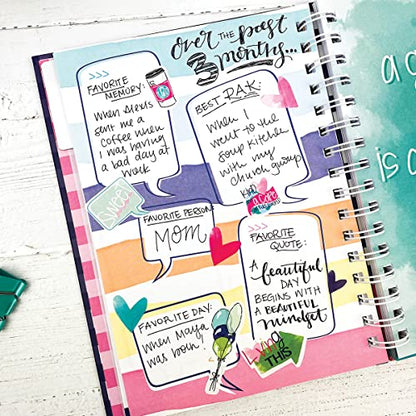 over THE past
3 months...
FAVORITE
MEMORY:
When Alexis
sent me a
coffee when
I was having
a bad day at
work
BEST DAY:
When I
went to the
soup kitchen
with my
church group
sweet
FAVORITE PERSON
MOM
FAVORITE
QUOTE:
A beautiful
DAY
BEGINS WITH
A BEAUTIFUL
mindset
FAVORITE DAY:
When Maya
was born
THIS
a g
is a